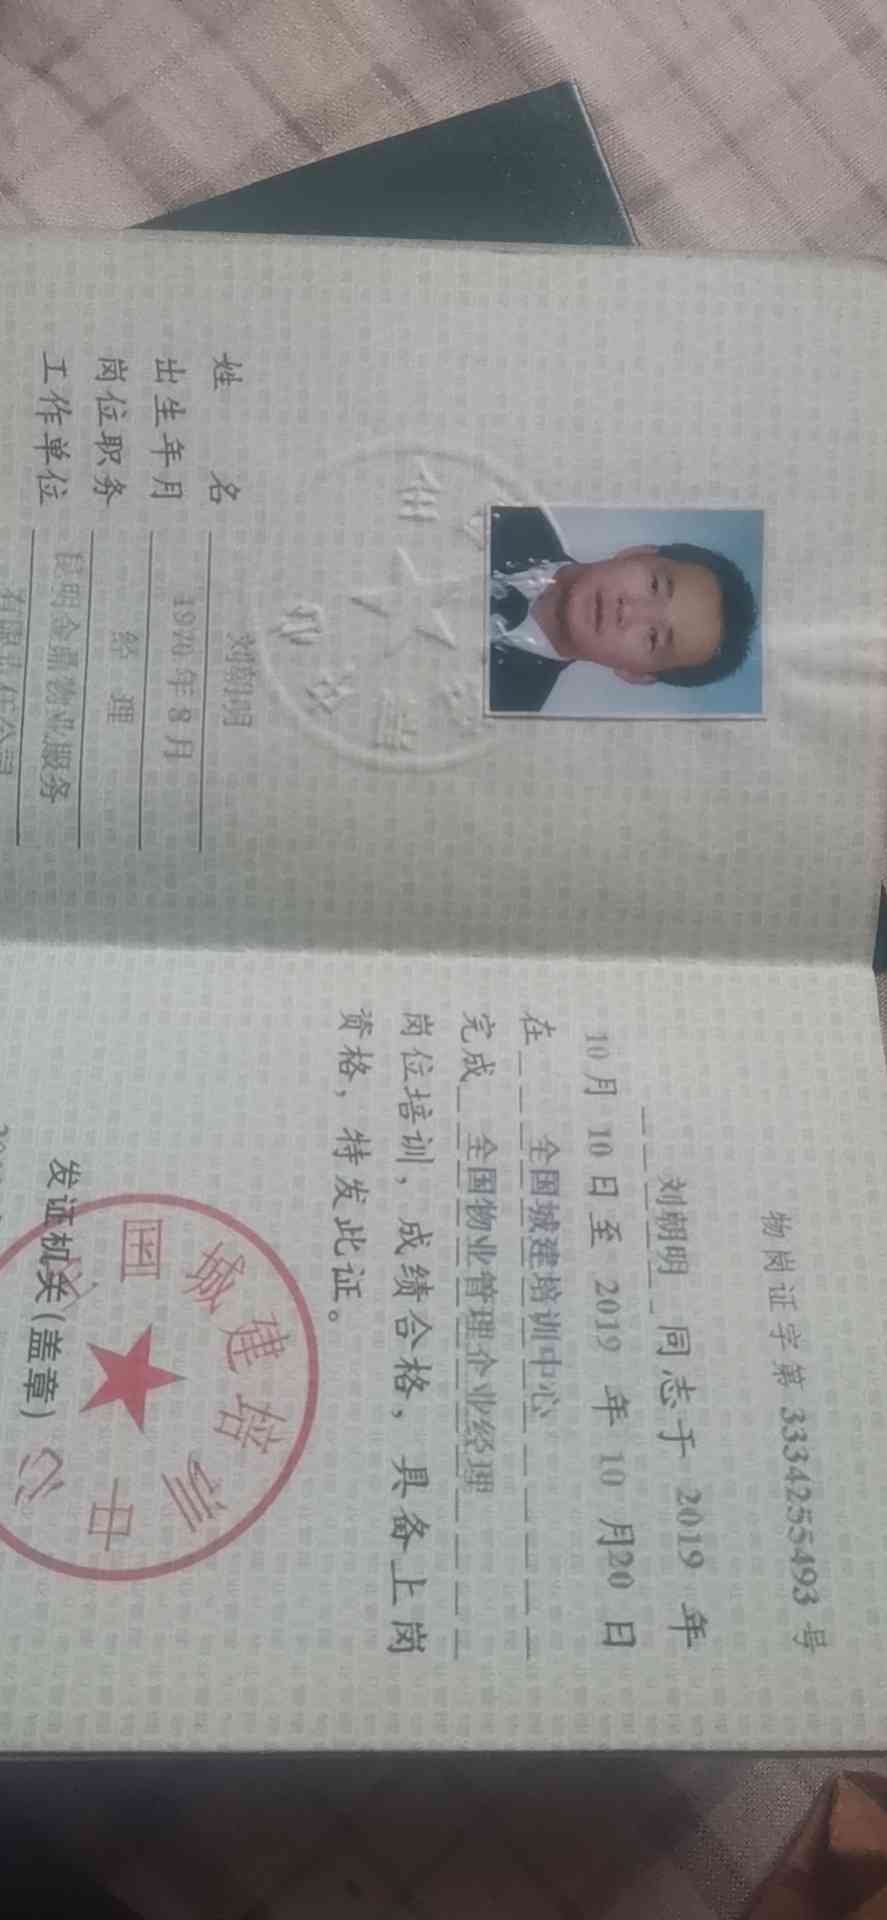 姓名 刘朝明
出生年月 1970年8月
岗位职务 经理
工作单位 昆明金鼎物业服务
有限责任公司
物岗证字第 3334255493 号
刘朝明 同志于 2019 年
10 月 10 日至 2019 年 10 月20 日
在 全国城建培训中心
完成 全国物业管理企业经理
岗位培训，成绩合格，具备上岗
资格，特发此证。
发证机关(盖章)
国城建培训中心